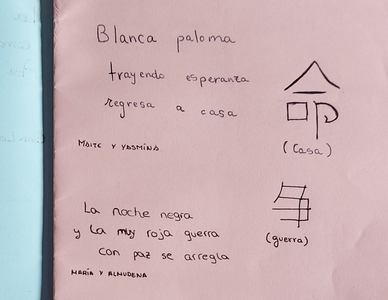 Blanca paloma
trayendo esperanza
regresa a casa
MAITE Y YASMINA
(Casa)
La noche negra
y la muy roja guerra
con paz se arregla
MARÍA Y ALMUDENA
(guerra)